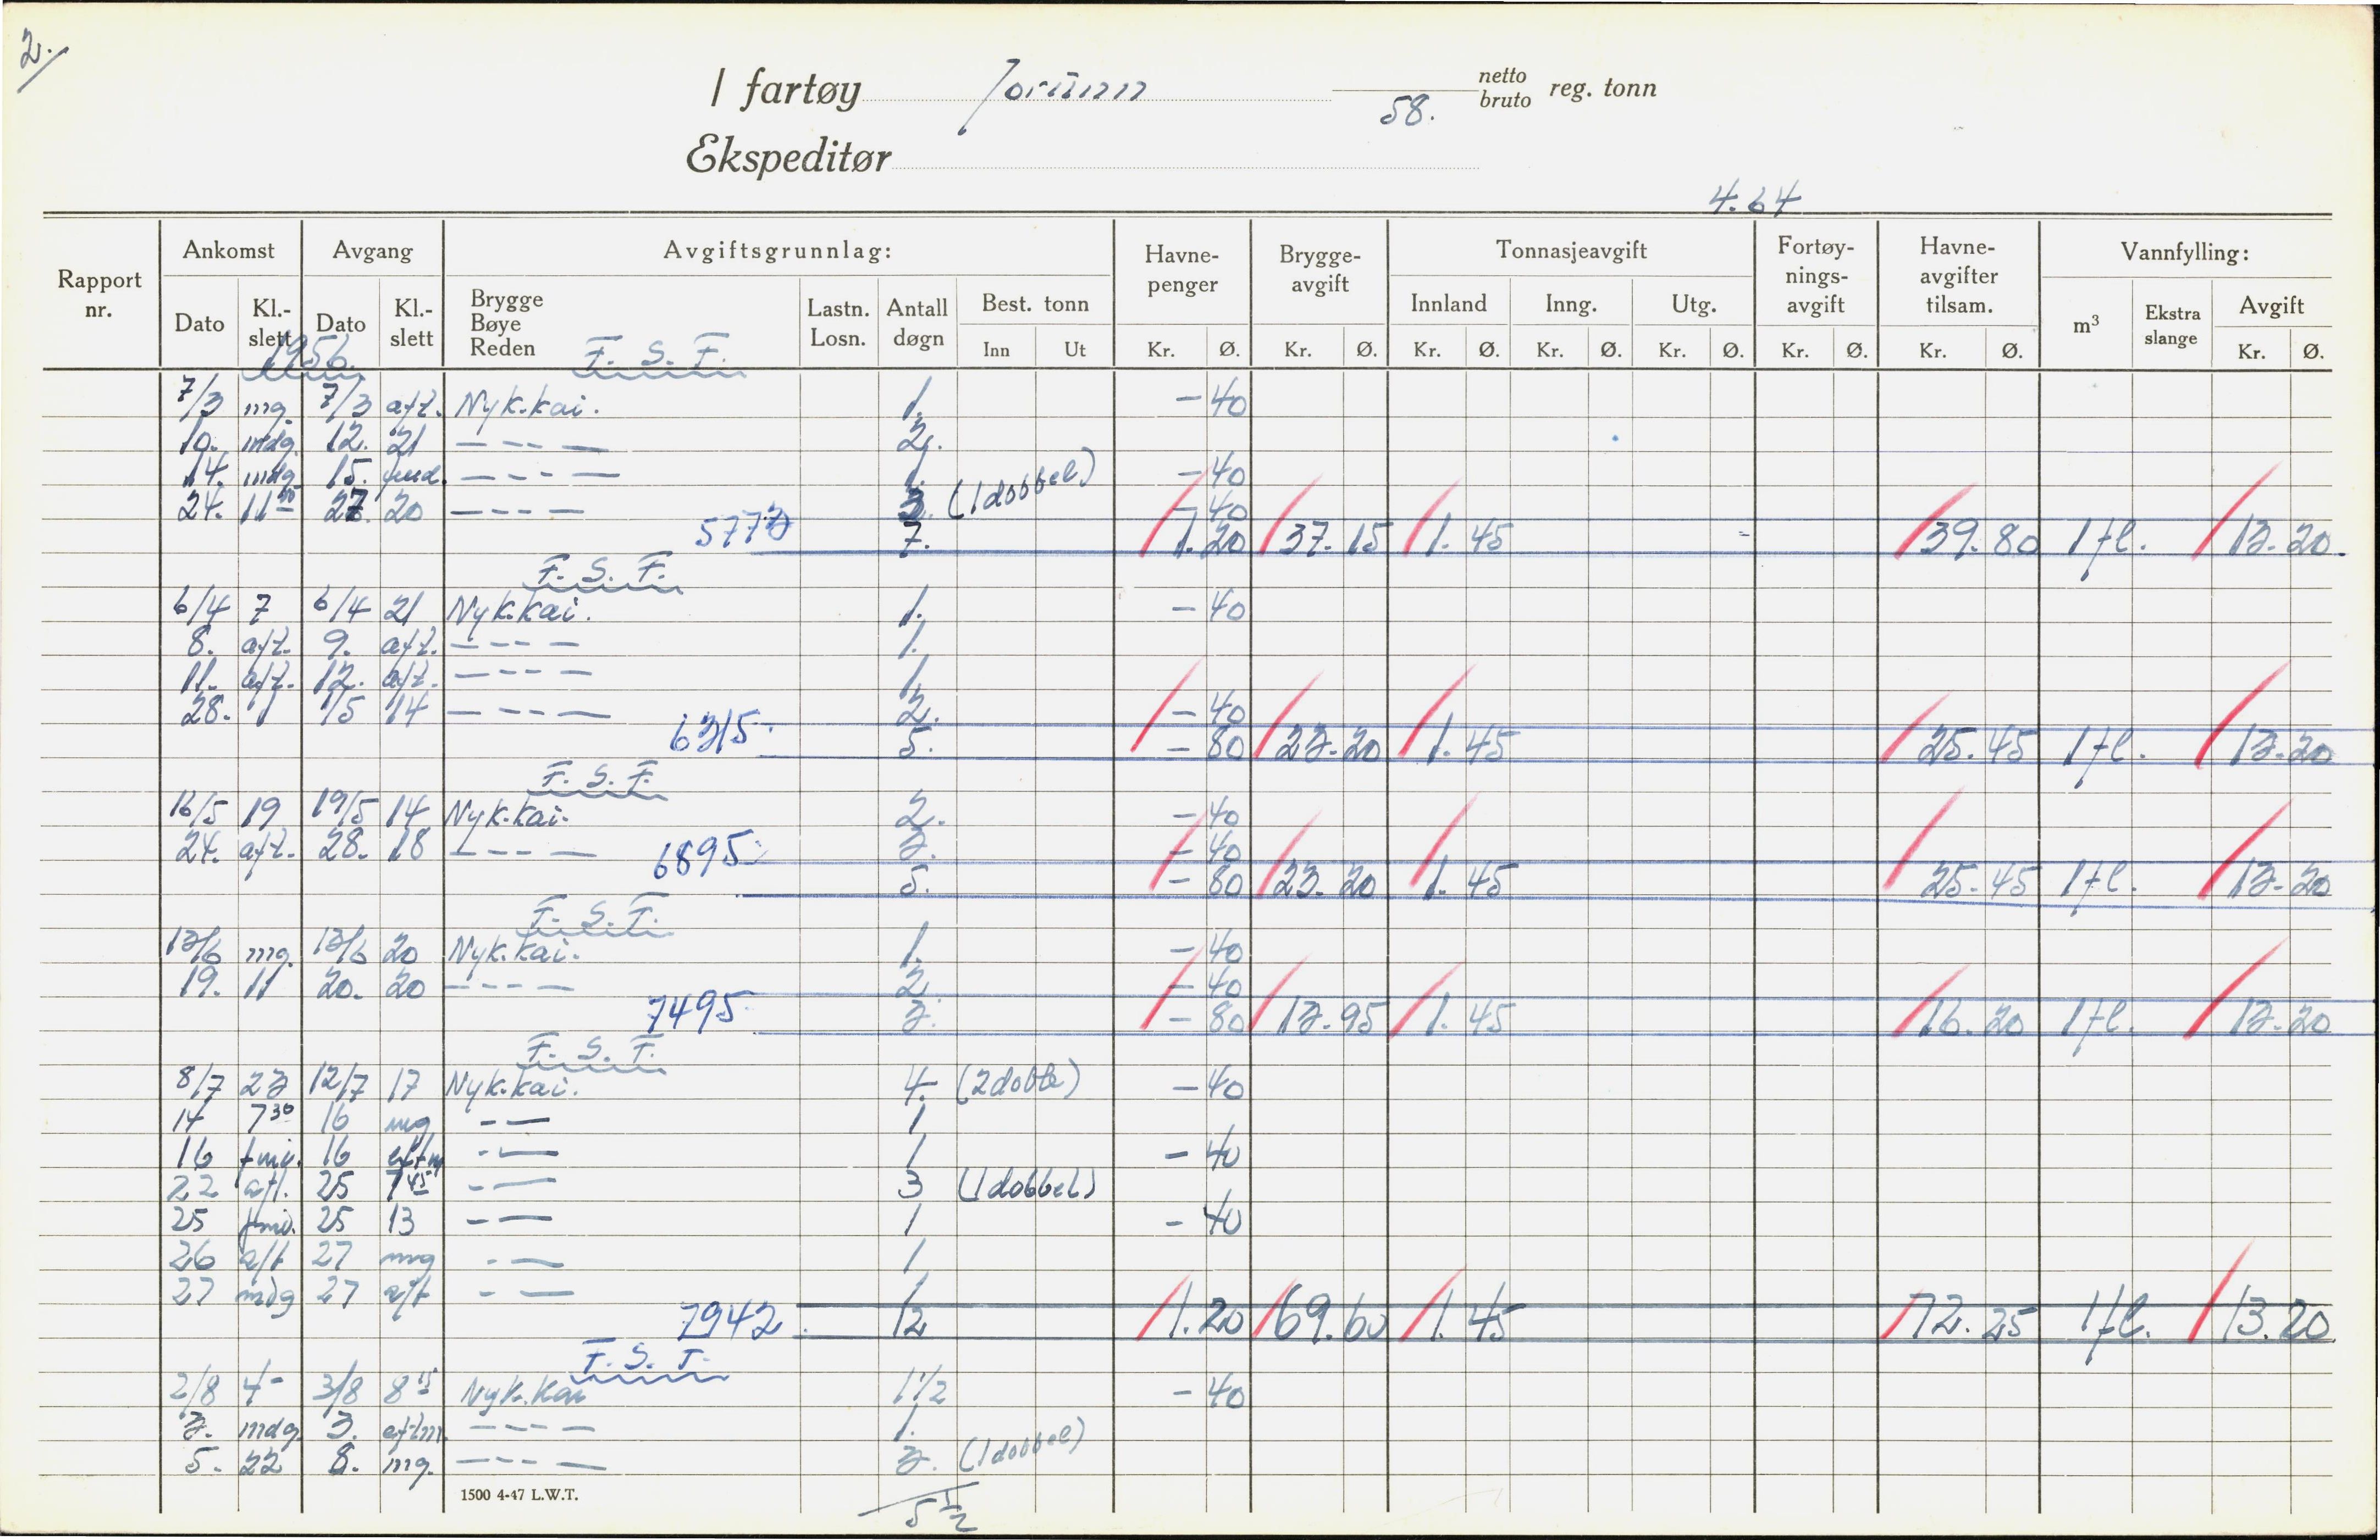 2.
I fartøy Jorunn 58. netto bruto reg. tonn
Ekspeditør
4.64
Rapport nr. Ankomst Avgang Avgiftsgrunnlag: Havne-penger Brygge-avgift Tonnasjeavgift Fortøy-nings-avgift Havne-avgifter tilsam. Vannfylling:
Dato Kl.-slett Dato Kl.-slett Brygge Bøye Reden Lastn. Losn. Antall døgn Best. tonn Innland Inng. Utg. m³ Ekstra slange Avgift
Inn Ut Kr. Ø. Kr. Ø. Kr. Ø. Kr. Ø. Kr. Ø. Kr. Ø. Kr. Ø. Kr. Ø.
1956. F. S. F.
7/3 mg. 7/3 aft. Nyk.kai. 1. - 40
10. mdg. 12. 21 - - - - 2.
14. mdg. 15. - - - - 1. - 40
24. 11 30 27. 20 - - - - 3. (1 dobbel) - 40
5773 7. 1.20 37.15 1.45 39.80 1 fl. 13.20.
F. S. F.
6/4 7 6/4 21 Nyk.kai. 1. - 40
8. aft. 9. aft. - - - - 1.
11. aft. 12. aft. - - - - 1.
28. 1/5 14 - - - - 2. - 40
6315. 5. - 80 23.20 1.45 25.45 1 fl. 13.20
F. S. F.
16/5 19 19/5 14 Nyk.kai. 2. - 40
24. aft. 28. 18 - - - - 3. - 40
6895. 5. - 80 23.20 1.45 25.45 1 fl. 13.20
F. S. F.
13/6 mg. 13/6 20 Nyk.kai. 1. - 40
19. 11 20. 20 - - - - 2. - 40
7495. 3. - 80 13.95 1.45 16.20 1 fl. 13.20
F. S. F.
8/7 23 12/7 17 Nyk.kai. 4. (2 doble) - 40
14 7 30 16 mg - - 1
16 fmd. 16 eftm - - 1 - 40
22 aft. 25 7 45 - - 3 (1 dobbel)
25 fmd. 25 13 - - 1 - 40
26 aft 27 mg - - 1
27 mdg 27 aft - - 1
7942. 12 1.20 69.60 1.45 72.25 1 fl. 13.20
F. S. F.
2/8 4- 3/8 8 15 Nyk.kai 1 1/2 - 40
3. mdg 3. eftm. - - - - 1.
5. 22 8. mg. - - - - 3. (1 dobbel)
1500 4-47 L.W.T.
5 1/2